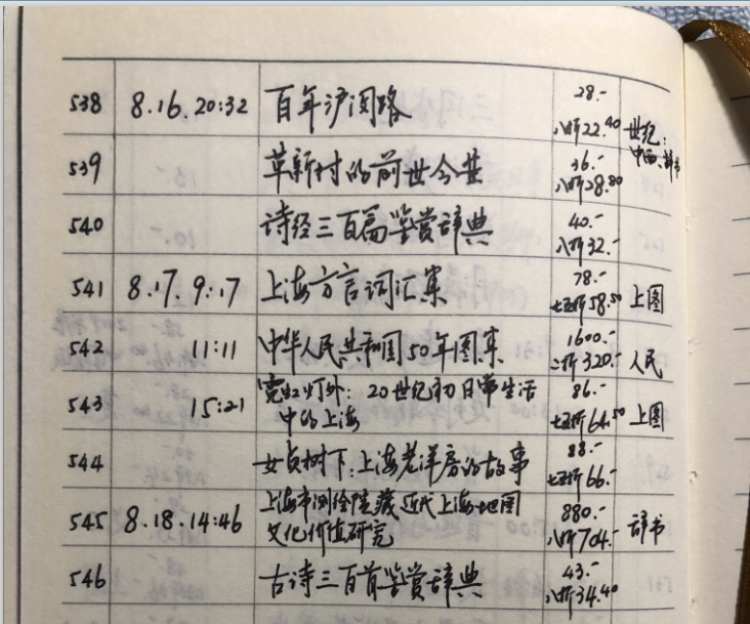 538 8.16. 20:32 百年沪闵路 28.-
八折22.40 世纪:
中西、辞书
539 革新村的前世今生 36.-
八折28.80
540 诗经三百篇鉴赏辞典 40.-
八折32.-
541 8.17. 9:17 上海方言词汇集 78.-
七五折58.50 上图
542 11:11 中华人民共和国50年图集 1600.-
二折320.- 人民
543 15:21 霓虹灯外: 20世纪初日常生活 86.-
中的上海 七五折64.50 上图
544 女贞树下:上海老洋房的故事 88.-
七五折66.-
545 8.18. 14:46 上海市测绘院藏近代上海地图 880.-
文化价值研究 八折704.- 辞书
546 古诗三百首鉴赏辞典 43.-
八折34.40